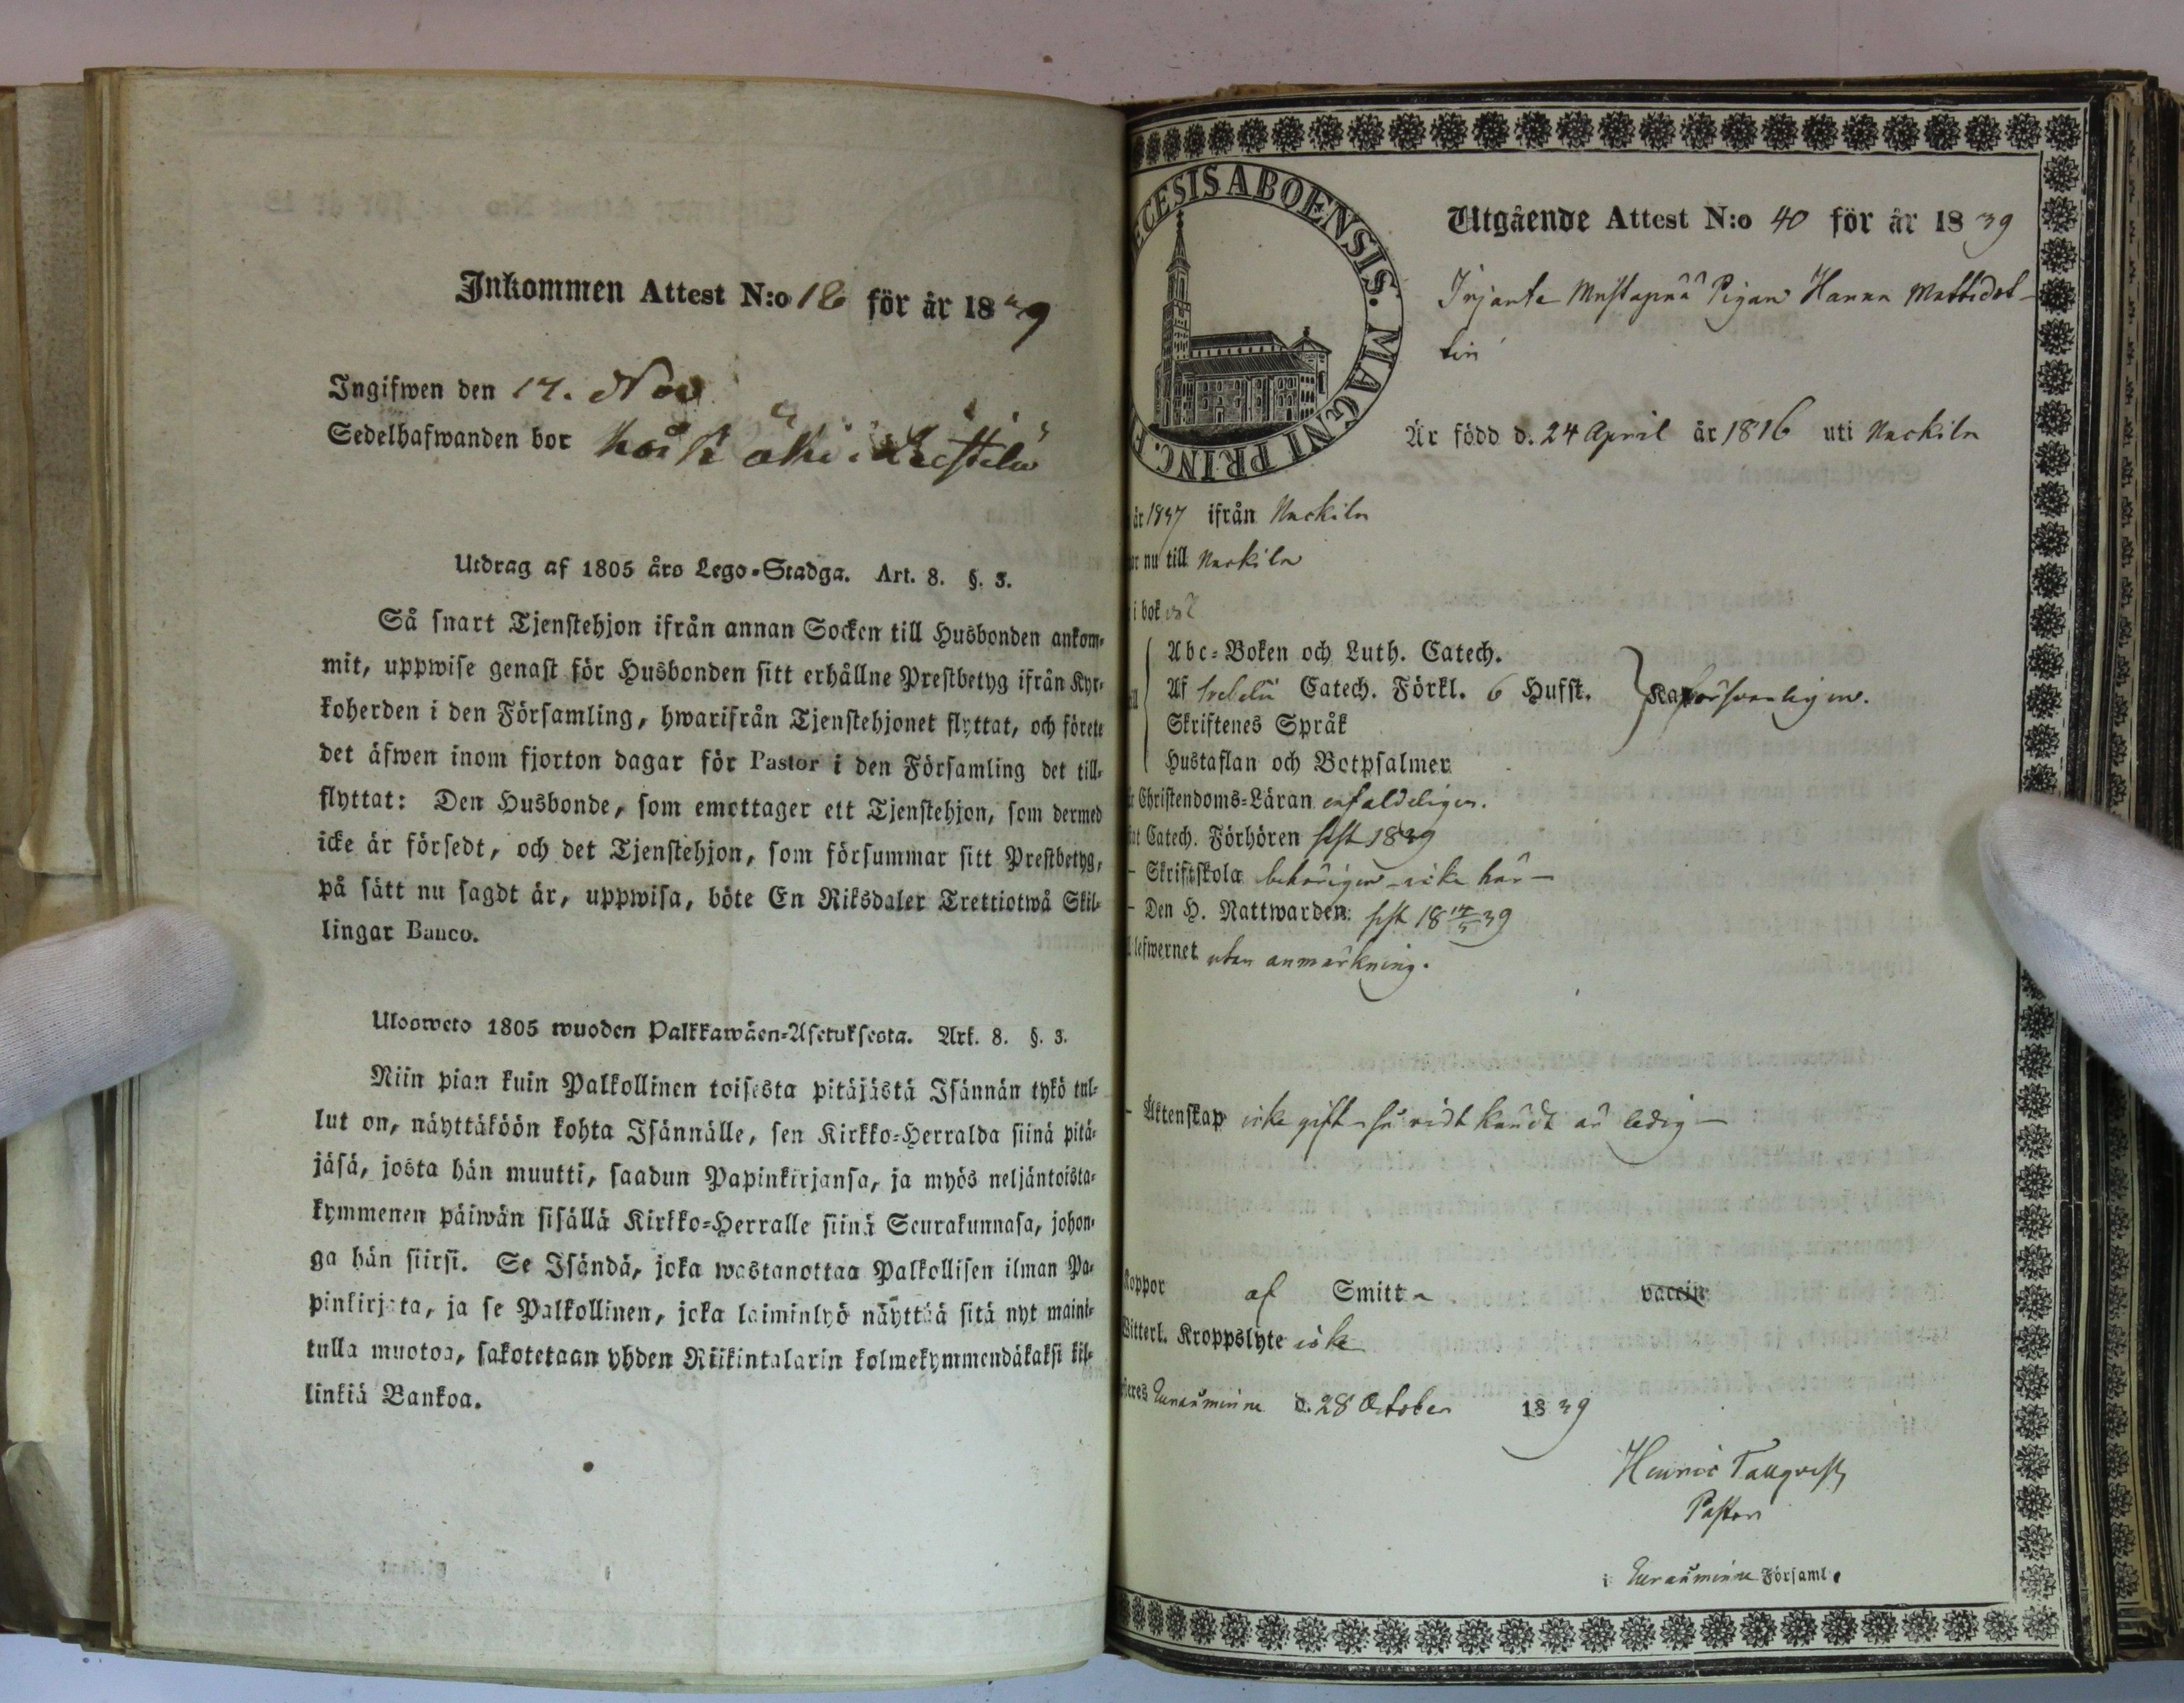 Inkommen Attest N:o 18 för år 1839
Ingifwen den 17. Nov
Sedelhafwanden bor
Utdrag af 1805 års Lego-Stadga. Art. 8. §. 3.
Så snart Tjenstehjon ifrån annan Socken till Husbonden ankom-
mit, uppwise genast för Husbonden sitt erhållne Prestbetyg ifrån Kyr-
koherden i den Församling, hwarifrån Tjenstehjonet flyttat, och förete
det äfwen inom fjorton dagar för Pastor i den Församling det till-
flyttat: Den Husbonde, som emottager ett Tjenstehjon, som dermed
icke är försedt, och det Tjenstehjon, som försummar sitt Prestbetyg,
på sätt nu sagdt är, uppwisa, böte En Riksdaler Trettiotwå Skil-
lingar Banco.
Ulosweto 1805 wuoden Palkkawäen-Asetuksesta. Art. 8. §. 3.
Niin pian kuin Palkollinen toisesta pitäjästä Isännän tykö tul-
lut on, näyttäköön kohta Isännälle, sen Kirkko-Herralda siinä pitä-
jäsä, josta hän muutti, saadun Papinkirjansa, ja myös neljäntoista-
kymmenen päiwän sisällä Kirkko-Herralle siinä Seurakunnasa, johon-
ga hän siirsi. Se Isändä, joka wastanottaa Palkollisen ilman Pa-
pinkirjata, ja se Palkollinen, joka laiminlyö näyttää sitä nyt maini-
tulla muotoa, sakotetaan yhden Riikintalarin kolmekymmendäkaksi kil-
linkiä Bankoa.
CESIS ABOENSIS. MAGNI PRINC. F
Utgående Attest N:o 40 för år 1839
Pigan Hanna Mattsdot-
ter
Är född d. 24 April år 1816 uti Nackila
år 1837 ifrån Nackila
nu till Nackila
i bok
Abc-Boken och Luth. Catech.
Af Svebelii Catech. Förkl. 6 Hufst.
Skriftenes Språk
försvarligen.
Hustaflan och Botpsalmer
Christendoms-Läran enfaldeligen.
Catech. Förhören sist 1839
- Skriftskola behörigen - icke här -
- Den H. Nattwarden sist 18 39
lefwernet utan anmärkning.
- Äktenskap icke gift - så vidt kändt är ledig -
koppor af Smitta vaccin
Witterl. Kroppslyte icke
Euraåminne d. 28 October 1839
Henric Tallqvist
Pastor
i Euraåminne Församl.